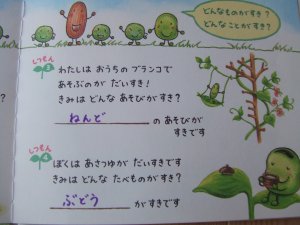 どんなものがすき？
どんなことがすき？
しつもん
3
わたしは おうちの ブランコで
あそぶのが だいすき！
きみは どんな あそびが すき？
ねんど の あそびが
すきです
しつもん
4
ぼくは あさつゆが だいすきです
きみは どんな たべものが すき？
ぶどう が すきです